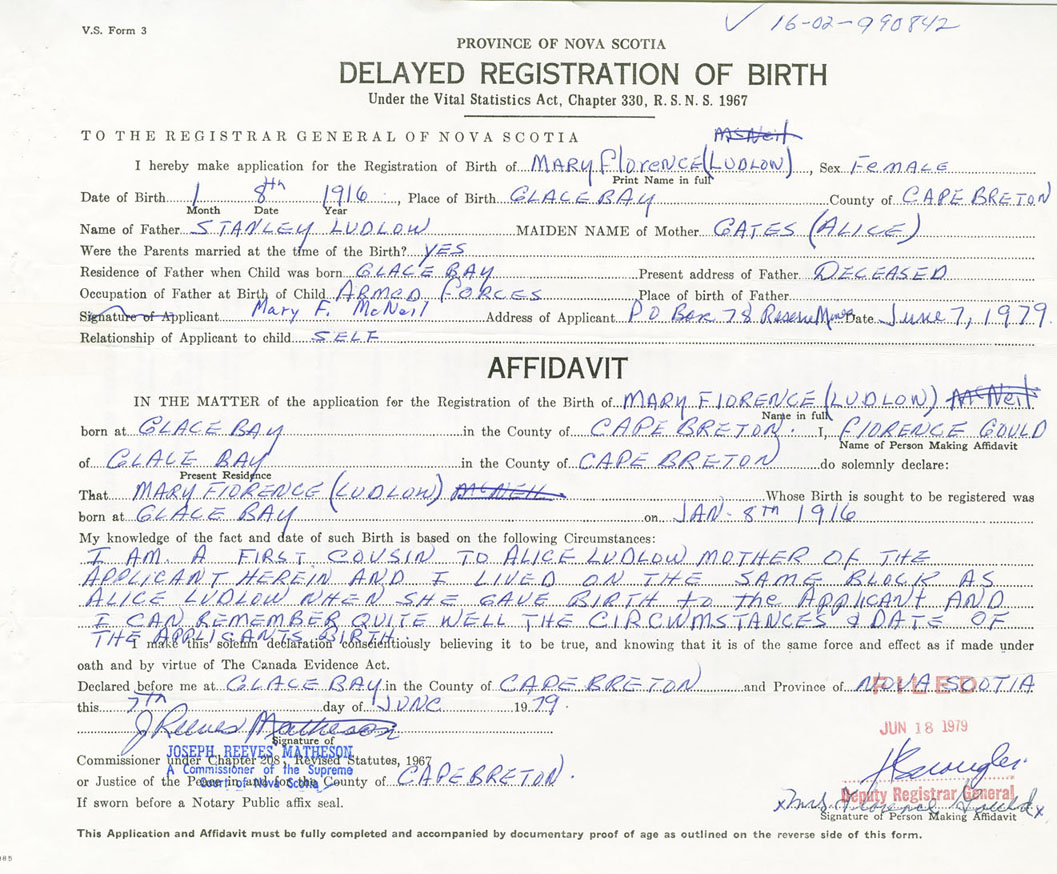 V.S. Form 3
✓ 16-02-990842
PROVINCE OF NOVA SCOTIA
DELAYED REGISTRATION OF BIRTH
Under the Vital Statistics Act, Chapter 330, R. S. N. S. 1967
TO THE REGISTRAR GENERAL OF NOVA SCOTIA McNeil
I hereby make application for the Registration of Birth of MARY FlORENCE (LUDLOW), Sex FEMALE
Print Name in full
Date of Birth 1 8th 1916, Place of Birth GLACE BAY County of CAPE BRETON
Month Date Year
Name of Father STANLEY LUDLOW MAIDEN NAME of Mother GATES (ALICE)
Were the Parents married at the time of the Birth? YES
Residence of Father when Child was born GLACE BAY Present address of Father DECEASED
Occupation of Father at Birth of Child ARMED FORCES Place of birth of Father
Signature of Applicant Mary F. McNeil Address of Applicant PO Box 78 Reserve Mines Date June 7, 1979
Relationship of Applicant to child SELF
AFFIDAVIT
IN THE MATTER of the application for the Registration of the Birth of MARY FlORENCE (LUDLOW) McNeil
Name in full
born at GLACE BAY in the County of CAPE BRETON. I, FlORENCE GOULD
Name of Person Making Affidavit
of GLACE BAY in the County of CAPE BRETON do solemnly declare:
Present Residence
That MARY FlORENCE (LUDLOW) McNEIL Whose Birth is sought to be registered was
born at GLACE BAY on JAN- 8TH 1916
My knowledge of the fact and date of such Birth is based on the following Circumstances:
I AM A FIRST COUSIN TO ALICE LUDLOW MOTHER OF THE
APPLICANT HEREIN AND I LIVED ON THE SAME BLOCK AS
ALICE LUDLOW WHEN SHE GAVE BIRTH to the APPlICANT AND
I CAN REMEMBER QUITE WELL THE CIRCUMSTANCES & DATE OF
THE APPLICANTS BIRTH.
I make this solemn declaration conscientiously believing it to be true, and knowing that it is of the same force and effect as if made under
oath and by virtue of The Canada Evidence Act.
Declared before me at GLACE BAY in the County of CAPE BRETON and Province of NOVA SCOTIA
FILED
this 7TH day of JUNE 1979.
JUN 18 1979
J Reeves Matheson
Signature of
JOSEPH REEVES MATHESON
Commissioner under Chapter 208, Revised Statutes, 1967
A Commissioner of the Supreme
Court of Nova Scotia
or Justice of the Peace in and for the County of CAPE BRETON.
Deputy Registrar General
If sworn before a Notary Public affix seal.
x Mrs Florence Gould x
Signature of Person Making Affidavit
This Application and Affidavit must be fully completed and accompanied by documentary proof of age as outlined on the reverse side of this form.